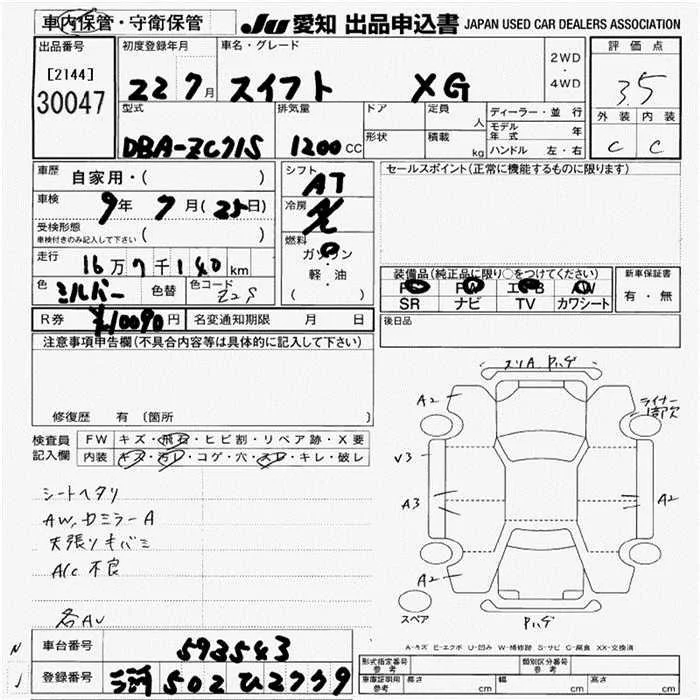 車内保管・守衛保管 JU 愛知 出品申込書 JAPAN USED CAR DEALERS ASSOCIATION
出品番号 初度登録年月 車名・グレード 2WD・4WD 評価点
[2144] 30047 22 7月 スイフト XG 3.5
型式 排気量 ドア 定員 人 ディーラー・並行 外装 内装
DBA-ZC71S 1200CC 形状 積載 kg モデル年式 年 C C
ハンドル 左・右
車歴 自家用・( ) シフト AT セールスポイント(正常に機能するものに限ります)
車検 9年 7月(25日) 冷房
受検形態 車検付きのみ記入して下さい ( ) 燃料 ガソリン・軽・油 ( )
走行 16万7千140km 装備品(純正品に限り○をつけてください) 新車保証書
色 シルバー 色替 色コード Z2S SR ナビ TV カワシート 有・無
R券 ¥10090円 名変通知期限 月 日 後日品
注意事項申告欄(不具合内容等は具体的に記入して下さい)
修復歴 有 (箇所
検査員記入欄 FW キズ・飛石・ヒビ割・リペア跡・X要
内装 キズ・汚レ・コゲ・穴・スレ・キレ・破レ
シートヘタリ
AW,ドミラーA
天張リキバミ
A/C 不良
スリA. Pハゲ
A2 ライナー1部欠
V3
A3 A2
A2
スペア Pハゲ
A-キズ E-エクボ U-凹み W-補修跡 S-サビ C-腐食 XX-交換済
車台番号 593543
登録番号 502 ひ2739
形式指定番号 参考 類別区分番号 参考
車庫証明用 参考 長さ cm 幅 cm 高さ cm